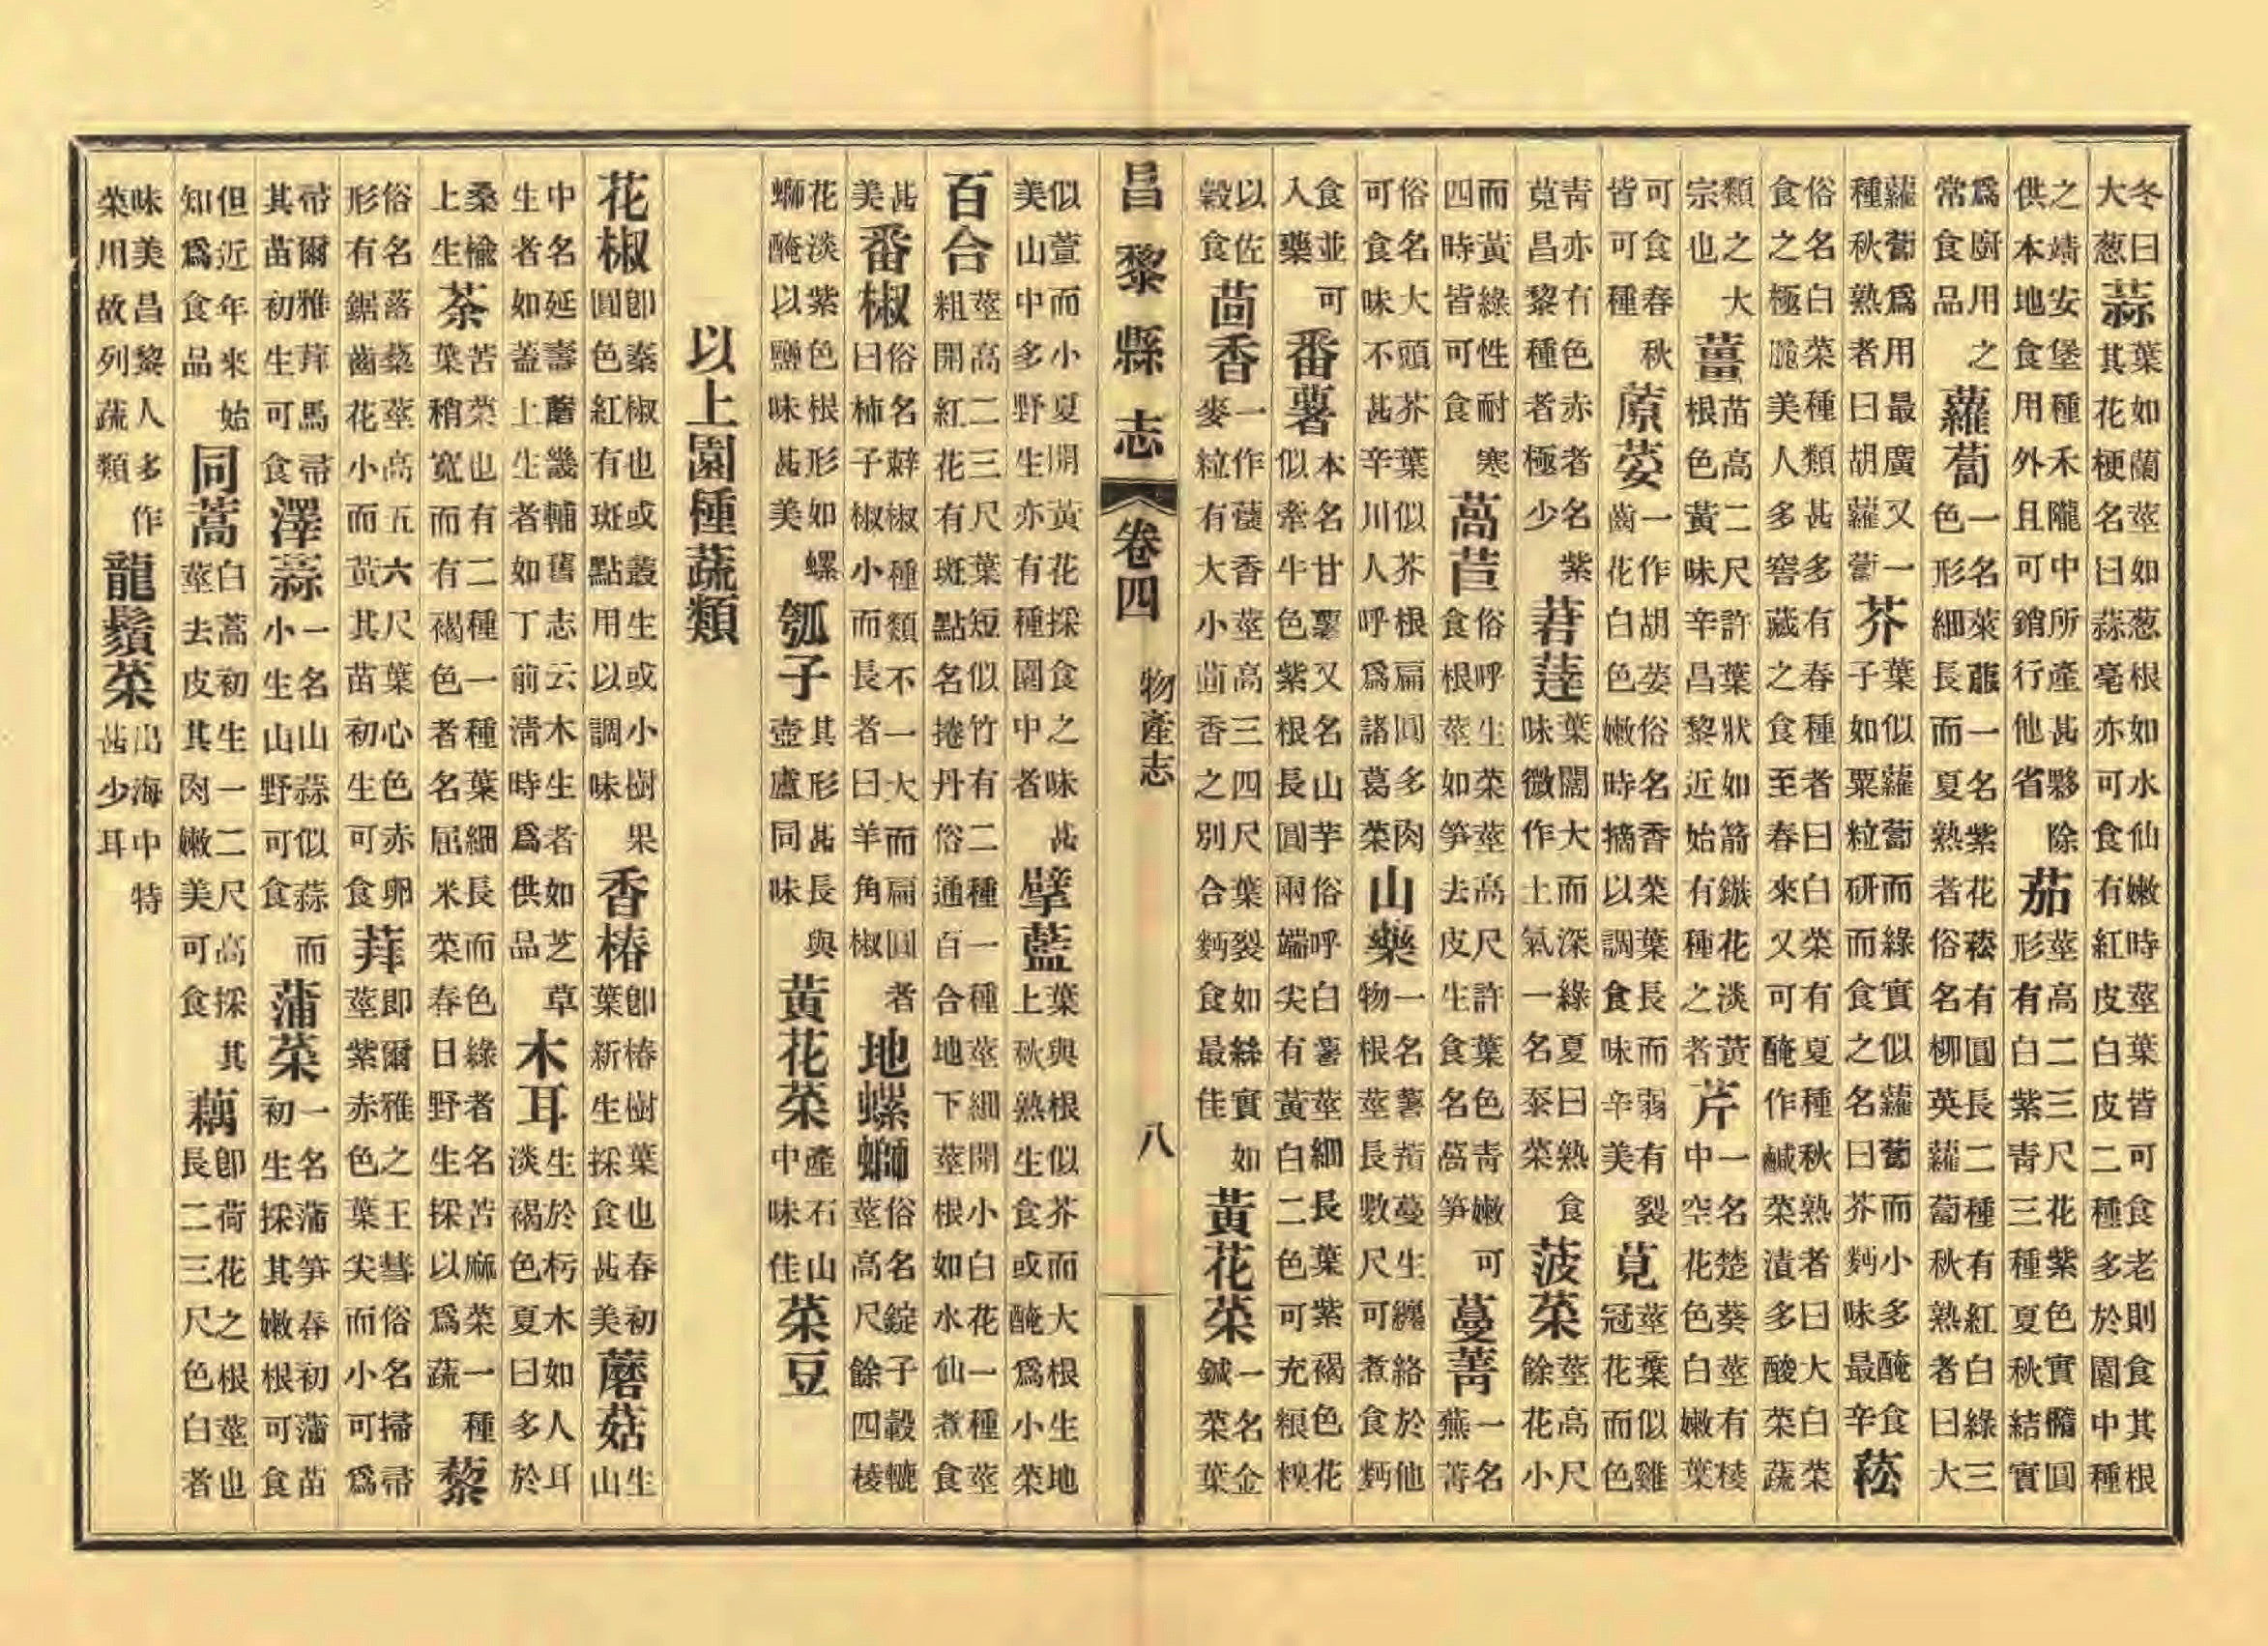 冬曰大葱蒜葉如蘭莖如葱根如水仙嫩時莖葉皆可食老則食其根其花梗名曰蒜毫亦可食有紅皮白皮二種多於園中種
之靖安堡種禾隴中所產甚夥除供本地食用外且可銷行他省茄莖高二三尺花紫色實橢圓形有白紫青三種夏秋結實
爲廚用之常食品蘿蔔一名萊菔一名紫花菘有圓長二種有紅白綠三色形細長而夏熟者俗名柳英蘿蔔秋熟者曰大
蘿蔔爲用最廣又一種秋熟者曰胡蘿蔔芥葉似蘿蔔而綠實似蘿蔔而小多醃食子如粟粒研而食之名曰芥麪味最辛菘
俗名白菜種類甚多有春種者曰白菜有夏種秋熟者曰大白菜食之極脆美人多窖藏之食至春來又可醃作鹹菜漬多酸菜蔬
類之大宗也薑苗高二尺許葉狀如箭鏃花淡黃根色黃味辛昌黎近始有種之者芹一名楚葵莖有稜中空花色白嫩葉
可食春秋皆可種蒝荽一作胡荽俗名香菜葉長而弱有裂齒花白色嫩時摘以調食味辛美莧莖葉似雞冠花而色
青亦有色赤者名紫莧昌黎種者極少莙薘葉闊大而深綠夏曰熟食味微作土氣一名忝菜菠菜莖高尺餘花小
而黃綠性耐寒四時皆可食萵苣俗呼生菜莖高尺許葉色青嫩可食根莖如笋去皮生食名萵笋蔓菁一名蕪菁
俗名大頭芥葉似芥根扁圓多肉可食味不甚辛川人呼爲諸葛菜山藥一名薯蕷蔓生纏絡於他物根莖長數尺可煮食麪
食並可入藥番薯本名甘藷又名山芋俗呼白薯莖細長葉紫褐色花似牽牛色紫根長圓兩端尖有黃白二色可充糧糗
以佐穀食茴香一作蘹香莖高三四尺葉裂如絲實如麥粒有大小茴香之別合麪食最佳黃花菜一名金鍼菜葉
昌黎縣志 卷四 物產志 八
似萱而小夏開黃花採食之味甚美山中多野生亦有種園中者擘藍葉與根似芥而大根生地上秋熟生食或醃爲小菜
百合莖高二三尺葉短似竹有二種一種莖細開小白花一種莖粗開紅花有斑點名捲丹俗通百合地下莖根如水仙煮食
甚美番椒俗名辣椒種類不一大而扁圓者曰柿子椒小而長者曰羊角椒地螺螄俗名錠子轂轆莖高尺餘四棱
花淡紫色根形如螺螄醃以鹽味甚美瓠子其形甚長與壺盧同味黃花菜產石山中味佳菜豆
以上園種蔬類
花椒卽秦椒也或叢生或小樹果圓色紅有斑點用以調味香椿卽椿樹葉也春初葉新生採食甚美蘑菇生山
中名延壽蘑畿輔舊志云木生者如芝草生者如蓋土生者如丁前清時爲供品木耳生於朽木如人耳淡褐色夏日多於
桑楡上生荼苦菜也有二種一種葉細長而色綠者名苦麻菜一種葉稍寬而有褐色者名屈米菜春日野生採以爲蔬藜
俗名落藜莖高五六尺葉心色赤卵形有鋸齒花小而黃其苗初生可食荓即爾雅之王彗俗名掃帚莖紫赤色葉尖而小可爲
帚爾雅荓馬帚其苗初生可食澤蒜一名山蒜似蒜而小生山野可食蒲菜一名蒲笋春初蒲苗初生採其嫩根可食
但近年來始知爲食品同蒿白蒿初生一二尺高採其莖去皮其肉嫩美可食藕卽荷花之根莖也長二三尺色白者
味美昌黎人多作菜用故列蔬類龍鬚菜出海中特甚少耳